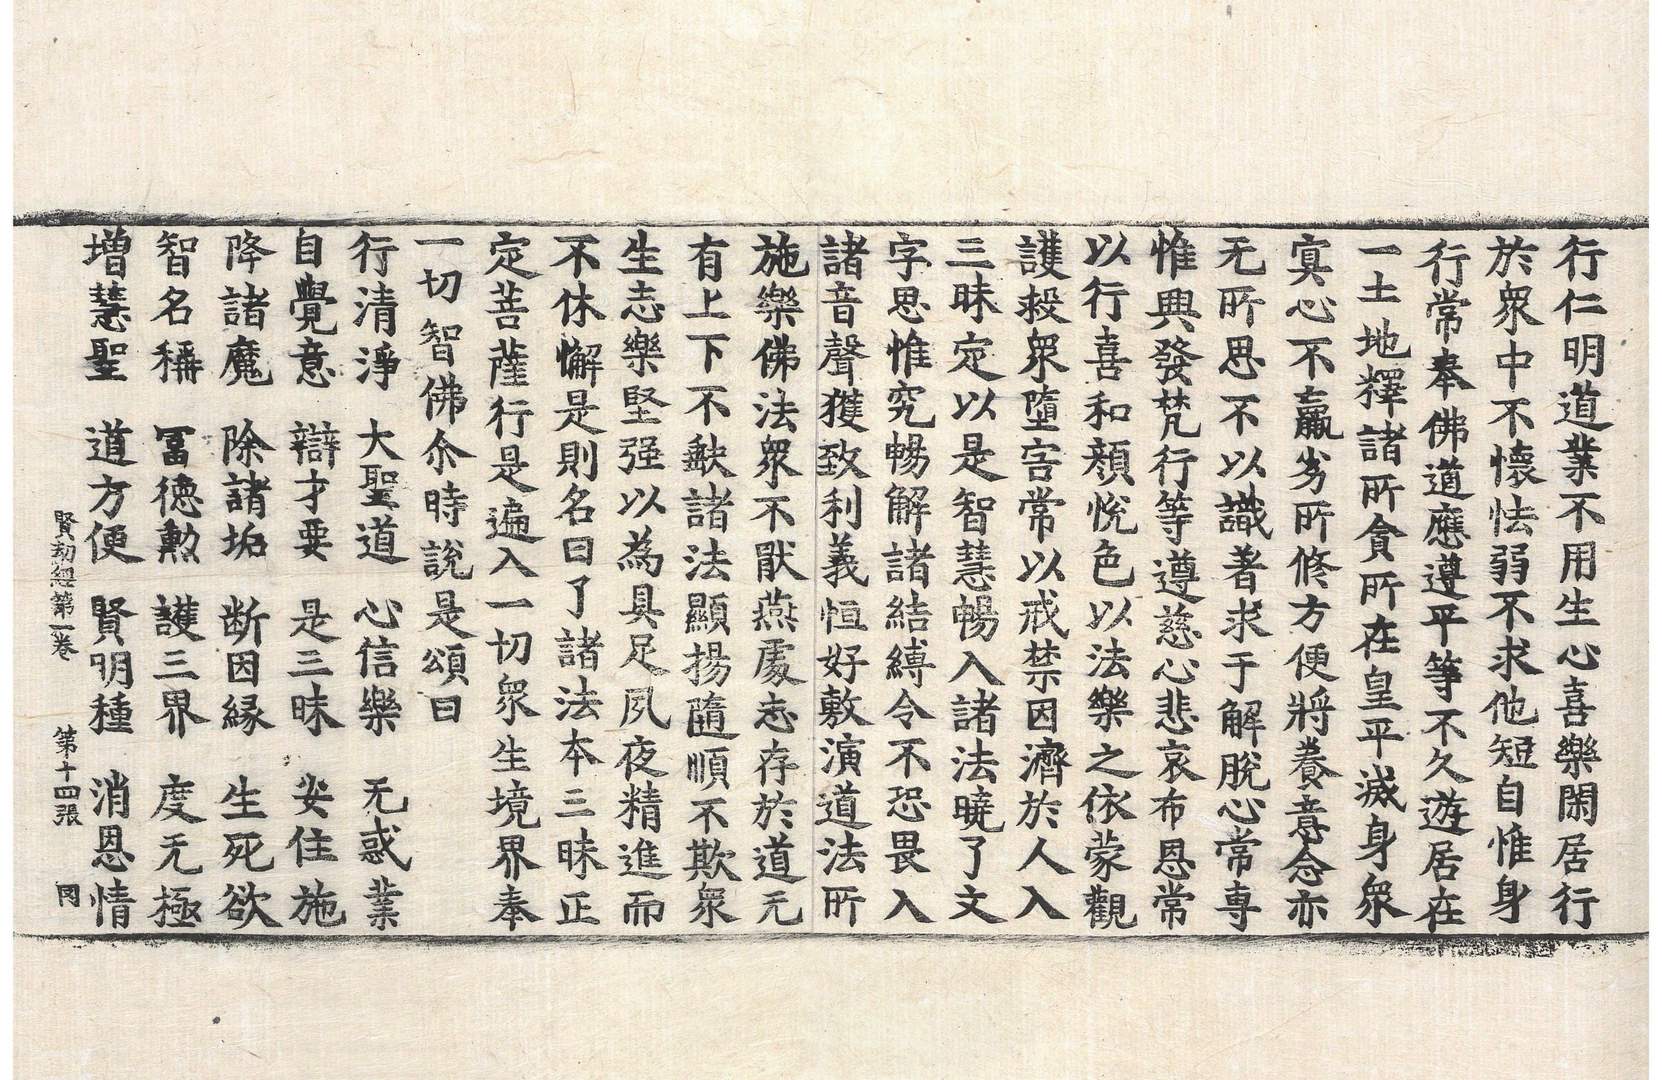 行仁明道業不用生心喜樂閑居行
於衆中不懷怯弱不求他短自惟身
行常奉佛道應遵平等不久遊居在
一土地釋諸所貪所在皇平滅身衆
寞心不羸劣所修方便將養意念亦
无所思不以識著求于解脫心常專
惟興發梵行等遵慈心悲哀布恩常
以行喜和顔悅色以法樂之依蒙觀
護救衆墮害常以戒禁因濟於人入
三昧定以是智慧暢入諸法曉了文
字思惟究暢解諸結縛令不恐畏入
諸音聲獲致利義恒好敷演道法所
施樂佛法衆不猒燕處志存於道无
有上下不歎諸法顯揚隨順不欺衆
生志樂堅强以為具足夙夜精進而
不休懈是則名曰了諸法本三昧正
定菩薩行是遍入一切衆生境界奉
一切智佛尒時說是頌曰
行清淨 大聖道 心信樂 无惑業
自覺意 辯才要 是三昧 安住施
降諸魔 除諸垢 断因緣 生死欲
智名稱 冨德勲 護三界 度无極
增慧聖 道方便 賢明種 消恩情
賢劫經第一卷 第十四張 罔